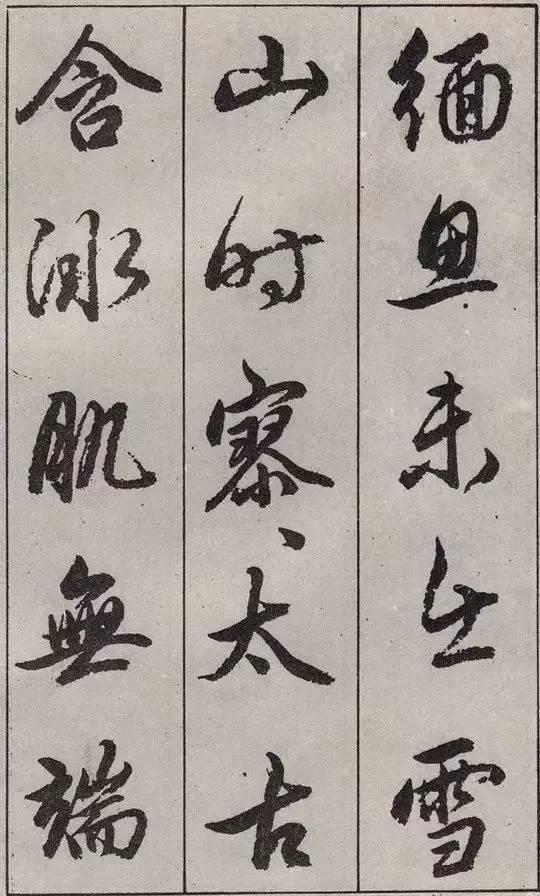 緬思未出雪
山时寥、太古
含冰肌無端